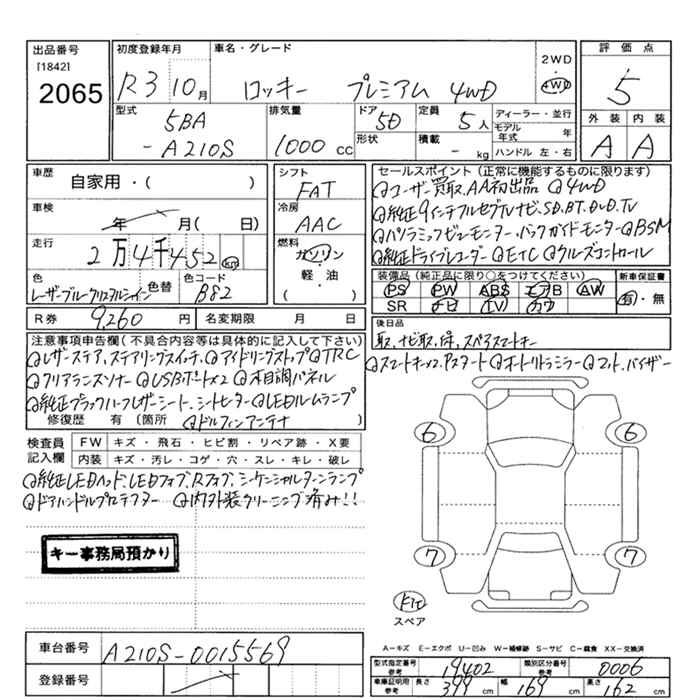 出品番号
[1842]
2065
初度登録年月
R3 10月
車名・グレード
ロッキー プレミアム 4WD
2WD
4WD
評価点
5
外装 内装
A A
型式
5BA
-A210S
排気量
1000 cc
ドア
5D
形状
定員
5人
積載
- kg
ディーラー・並行
モデル年式 年
ハンドル 左・右
車歴
自家用・( )
車検
年 月( 日)
走行
2万4千452 km
色
レーザーブルークリスタルシャイン
色替
色コード
B82
シフト
FAT
冷房
AAC
燃料
ガソリン
軽・油
( )
R券 9,260 円
名変期限 月 日
セールスポイント(正常に機能するものに限ります)
Qユーザー買取、AA初出品 Q4WD
Q純正9インチフルセグTVナビ、SD、BT、DVD、TV
Qパノラミックビューモニター、バックガイドモニターQBSM
Q純正ドライブレコーダー QETC Qクルーズコントロール
装備品(純正品に限り○をつけてください)
PS PW ABS エアB AW
SR ナビ TV カワ
新車保証書
有・無
後日品
取、ナビ取、保、スペアスマートキー
注意事項申告欄(不具合内容等は具体的に記入して下さい)
Qレザーステア、ステアリングスイッチ、Qアイドリングストップ QTRC
QクリアランスソナーQUSBポート×2 Q木目調パネル
Q純正ブラックハーフレザーシート、シートヒーターQLEDルームランプ
修復歴 有(箇所 Qドルフィンアンテナ
Qスマートキー×2、PスタートQオートリトラミラーQマット、バイザー
検査員記入欄
FW キズ・飛石・ヒビ割・リペア跡・X要
内装 キズ・汚レ・コゲ・穴・スレ・キレ・破レ
Q純正LEDヘッド、LEDフォグ、Rフォグ、シーケンシャルターンランプ
Qドアハンドルプロテクター Q内外装クリーニング済み!!
キー事務局預かり
6 6
7 7
スペア
A-キズ E-エクボ U-凹み W-補修跡 S-サビ C-腐食 XX-交換済
車台番号 A210S-0015569
登録番号
型式指定番号 参考 19402
類別区分番号 参考 0006
車庫証明用 参考 長さ 399 cm 幅 169 cm 高さ 162 cm